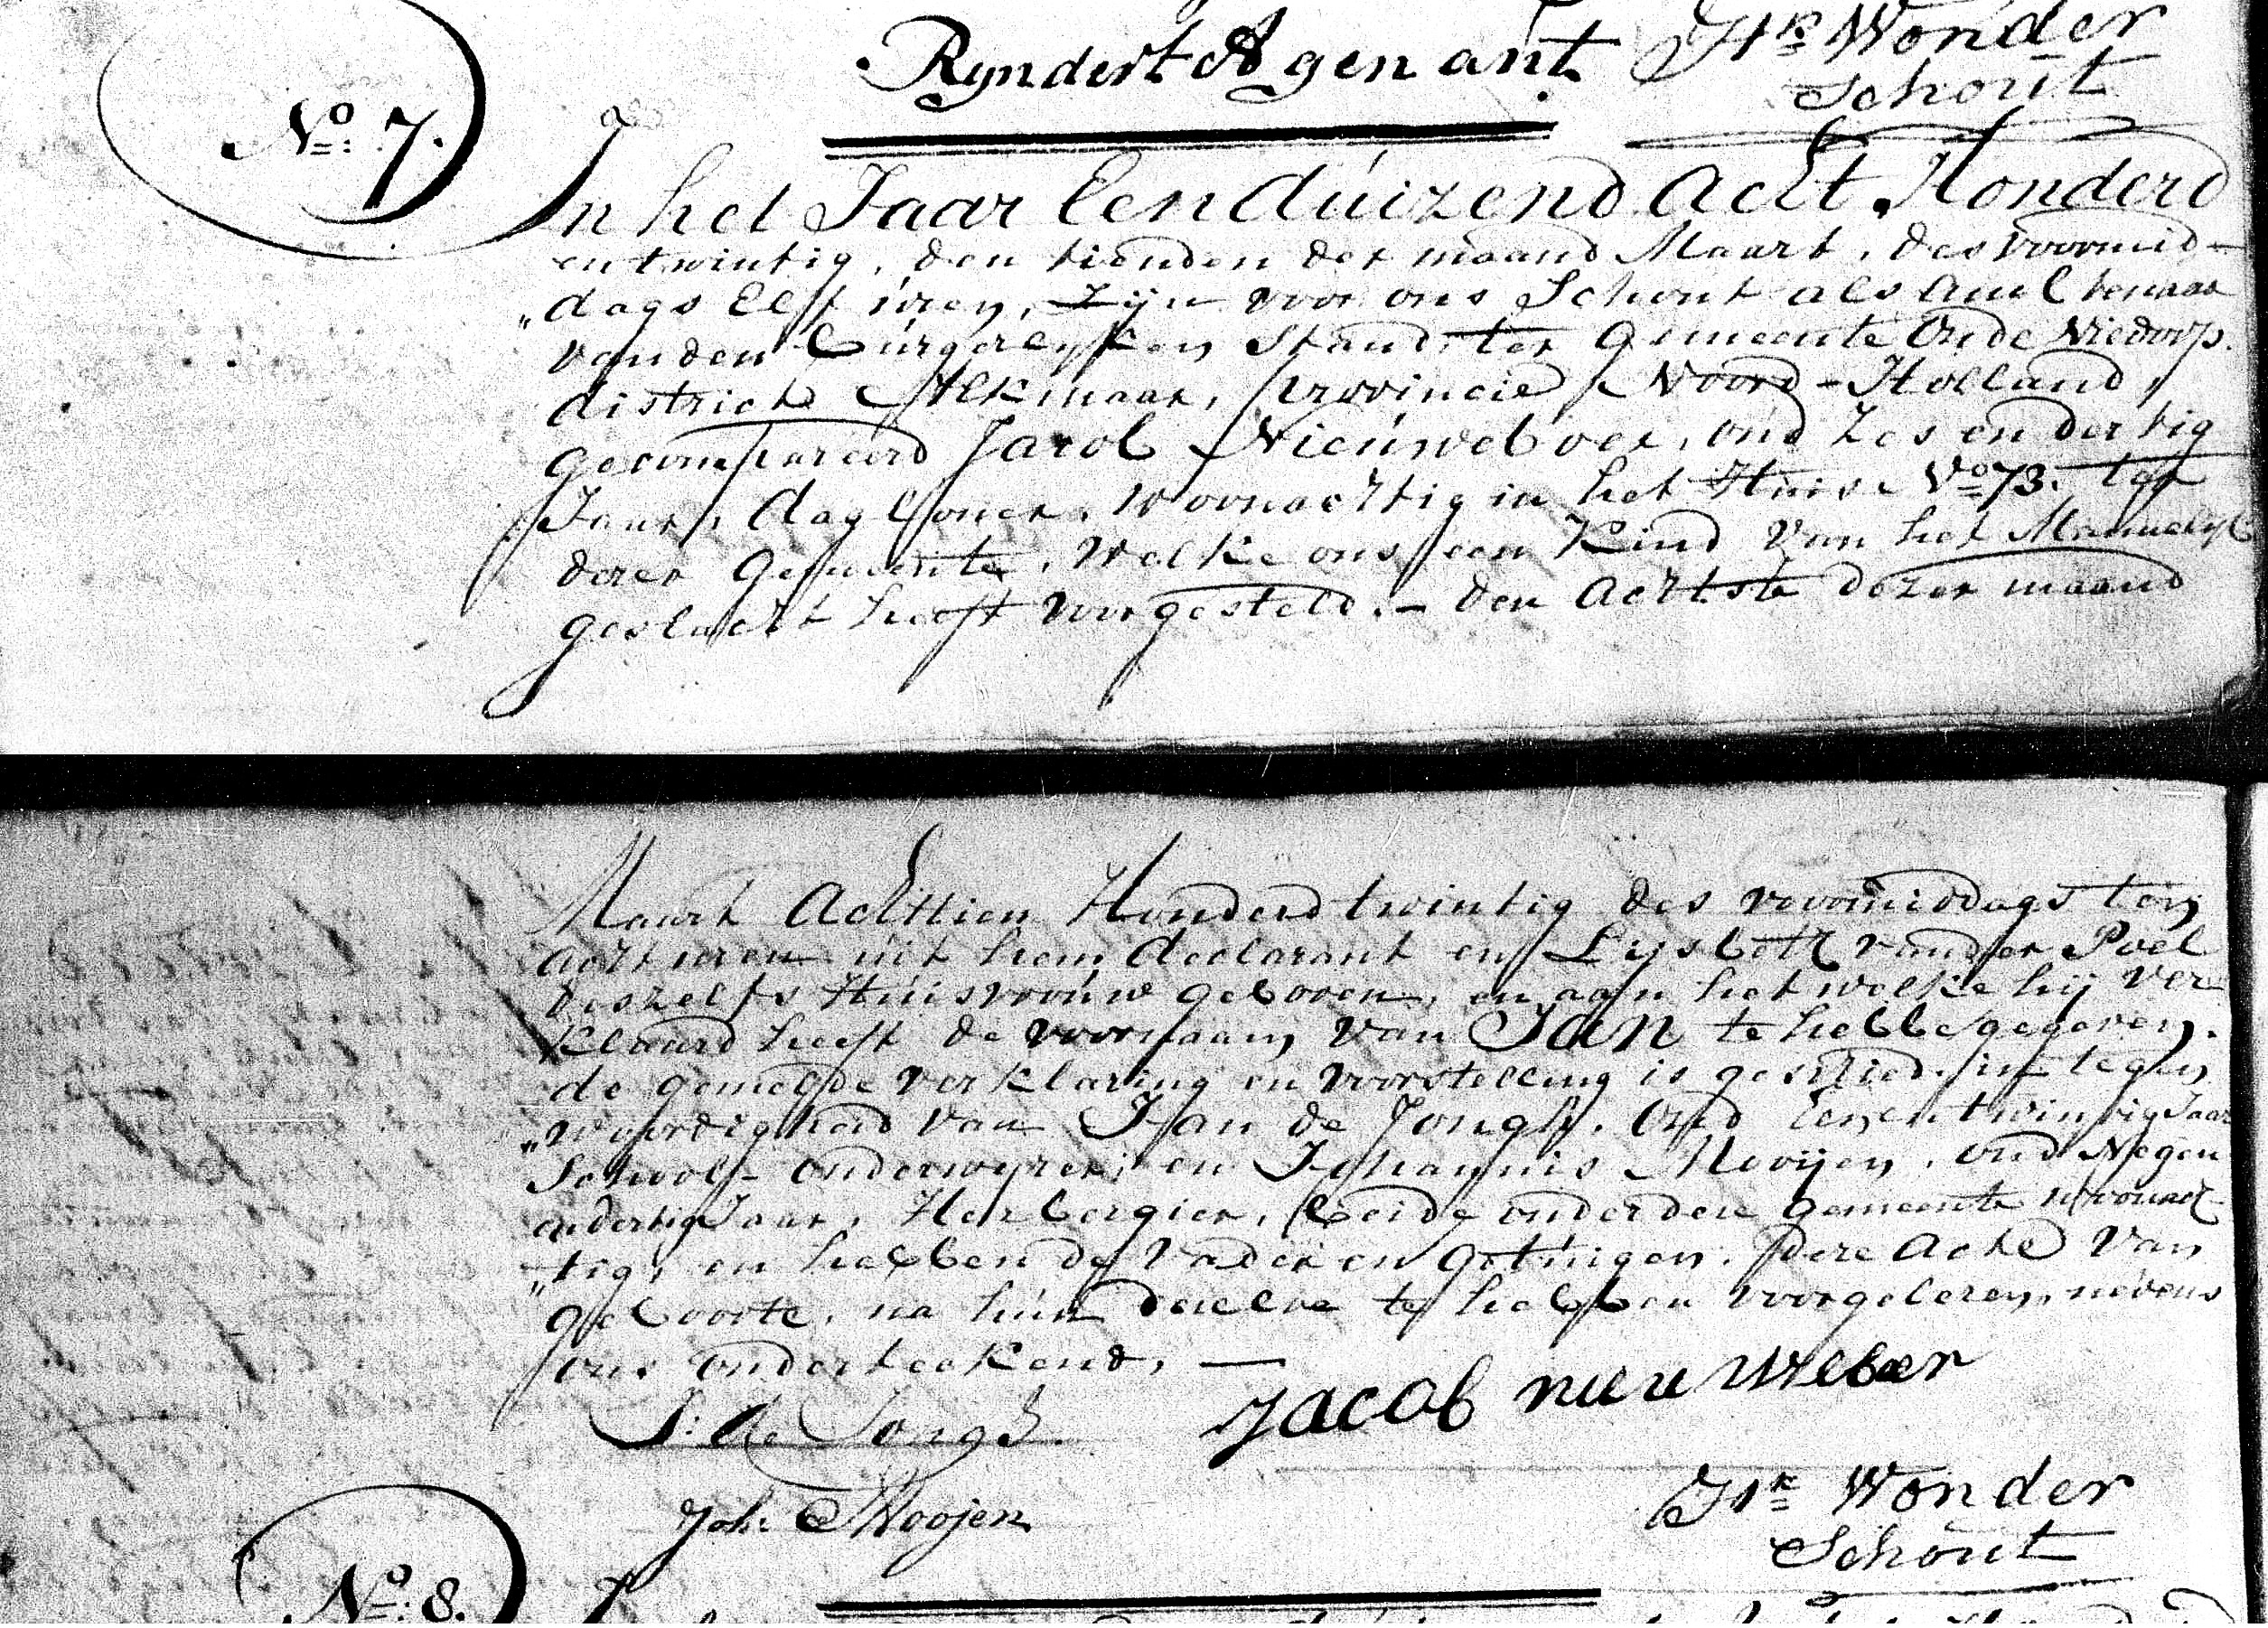 Ryndert Agenant Jk Wonder
Schout
No: 7.
In het Jaar Een duizend Acht Honderd
en twintig, den tienden der maand Maart, des voormid-
„dags Elf uren, zijn voor ons Schout als Amb tenaar
van den Burgerlyken Stand, ter Gemeente Oude Niedorp.
district Alkmaar, Provincie Noord-Holland,
gecompareerd Jacob Nieuweboer, oud Zes en dertig
Jaar, dagloner, woonachtig in het Huis No 73. ter
dezer Gemeente, welke ons een Kind van het Mannelijk
geslacht heeft voorgesteld. – den achtste dezer maand
Maart Achttien Honderd twintig des voormiddags ten
acht uren uit hem declarant en Lijsbeth van der Poel
deszelfs Huisvrouw geboren, en aan het welke hij ver
klaard heeft de voornaam van Jan te hebbe gegeven.
de gemelde verklaring en voorstelling is geschied in tegen
„woordigheid van Jan de Jongh. Oud Een en twintig Jaar
School-onderwyzer, en Johannis Mooijen, oud Negen
en dertig Jaar, Herbergier, beide onder deze Gemeente woonach
„tig, en hebben de Vader en Getuigen. deze Acte van
geboorte, na hun dezelve te hebben voorgelezen, nevens
ons onderteekend, —
J: de Jongh. Jacob nieuweboer
Joh: Moojen Jk Wonder
Schout
No: 8.